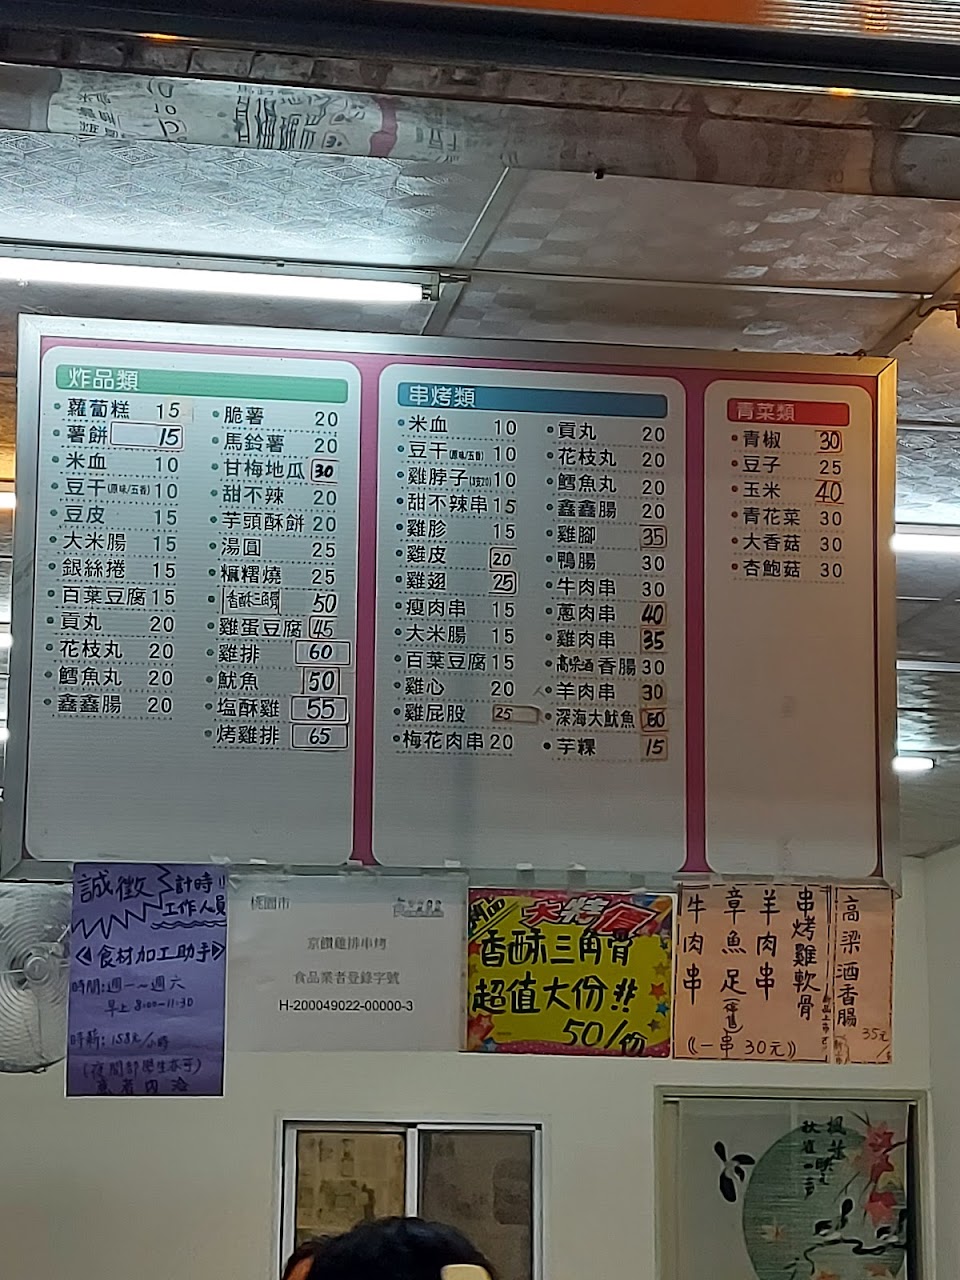 炸品類
蘿蔔糕 15
薯餅 15
米血 10
豆干(原味/五香) 10
豆皮 15
大米腸 15
銀絲捲 15
百葉豆腐 15
貢丸 20
花枝丸 20
鱈魚丸 20
鑫鑫腸 20
脆薯 20
馬鈴薯 20
甘梅地瓜 30
甜不辣 20
芋頭酥餅 20
湯圓 25
糯糬燒 25
香酥三角骨 50
雞蛋豆腐 45
雞排 60
魷魚 50
塩酥雞 55
烤雞排 65
串烤類
米血 10
豆干(原味/五香) 10
雞脖子(3支20) 10
甜不辣串 15
雞胗 15
雞皮 20
雞翅 25
瘦肉串 15
大米腸 15
百葉豆腐 15
雞心 20
雞屁股 25
梅花肉串 20
貢丸 20
花枝丸 20
鱈魚丸 20
鑫鑫腸 20
雞腳 35
鴨腸 30
牛肉串 30
蔥肉串 40
雞肉串 35
高梁酒香腸 30
羊肉串 30
深海大魷魚 60
芋粿 15
青菜類
青椒 30
豆子 25
玉米 40
青花菜 30
大香菇 30
杏鮑菇 30
誠徵 計時!!
工作人員
《食材加工助手》
時間:週一~週六
早上 8:00~11:30
時薪: 158元/小時
(夜間部學生亦可)
意者內洽
桃園市
京饌雞排串烤
食品業者登錄字號
H-200049022-00000-3
大特食
香酥三角骨
超值大份!!
50/份
串烤雞軟骨
新品上市
羊肉串
章魚足
牛肉串
《一串30元》
高梁酒香腸
35元/